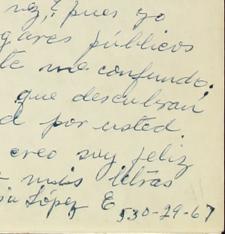 vez, ? pues yo
gares públicos
te me confundo.
que descubran
d por usted.
creo soy feliz
mis letras
López E 530-29-67